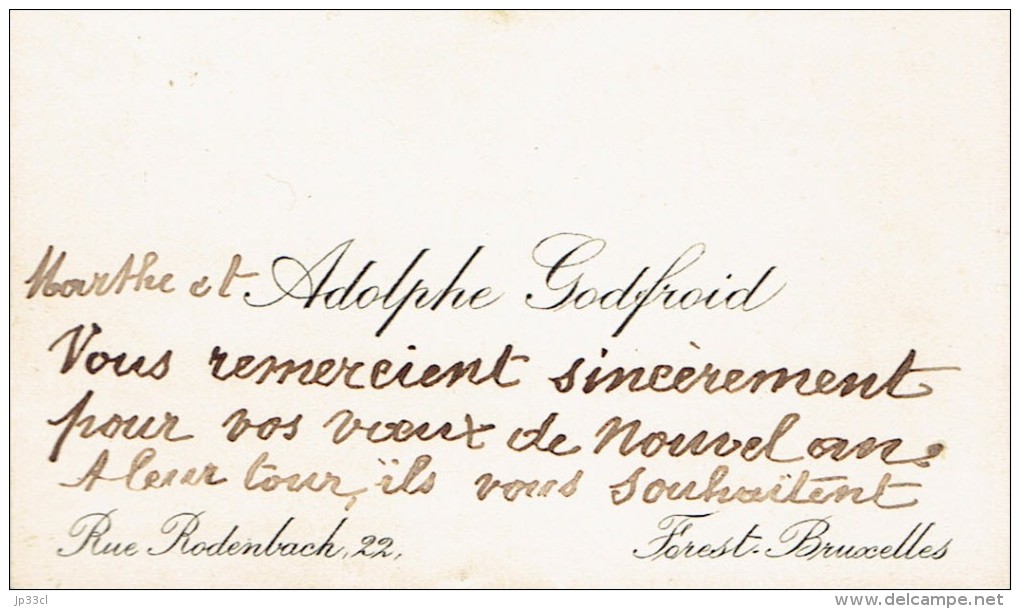 Marthe et Adolphe Godfroid
Vous remercient sincèrement
pour vos vœux de Nouvel an.
A leur tour, ils vous souhaitent
Rue Rodenbach, 22, Forest-Bruxelles
jp33cl
www.delcampe.net